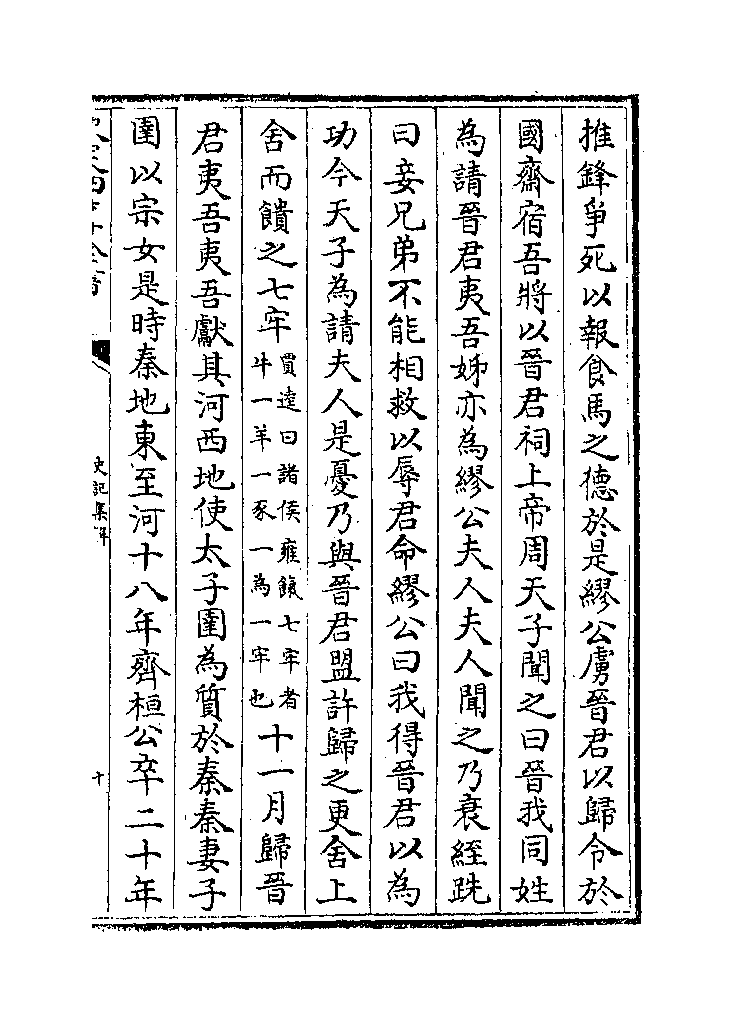 推鋒爭死以報食馬之德於是繆公虜晉君以歸令於
國齋宿吾將以晉君祠上帝周天子聞之曰晉我同姓
為請晉君夷吾姊亦為繆公夫人夫人聞之乃衰絰跣
曰妾兄弟不能相救以辱君命繆公曰我得晉君以為
功今天子為請夫人是憂乃與晉君盟許歸之更舍上
舍而饋之七牢賈逵曰諸侯雍餼七牢者牛一羊一豕一為一牢也十一月歸晉
君夷吾夷吾獻其河西地使太子圉為質於秦秦妻子
圉以宗女是時秦地東至河十八年齊桓公卒二十年
史記集解
十